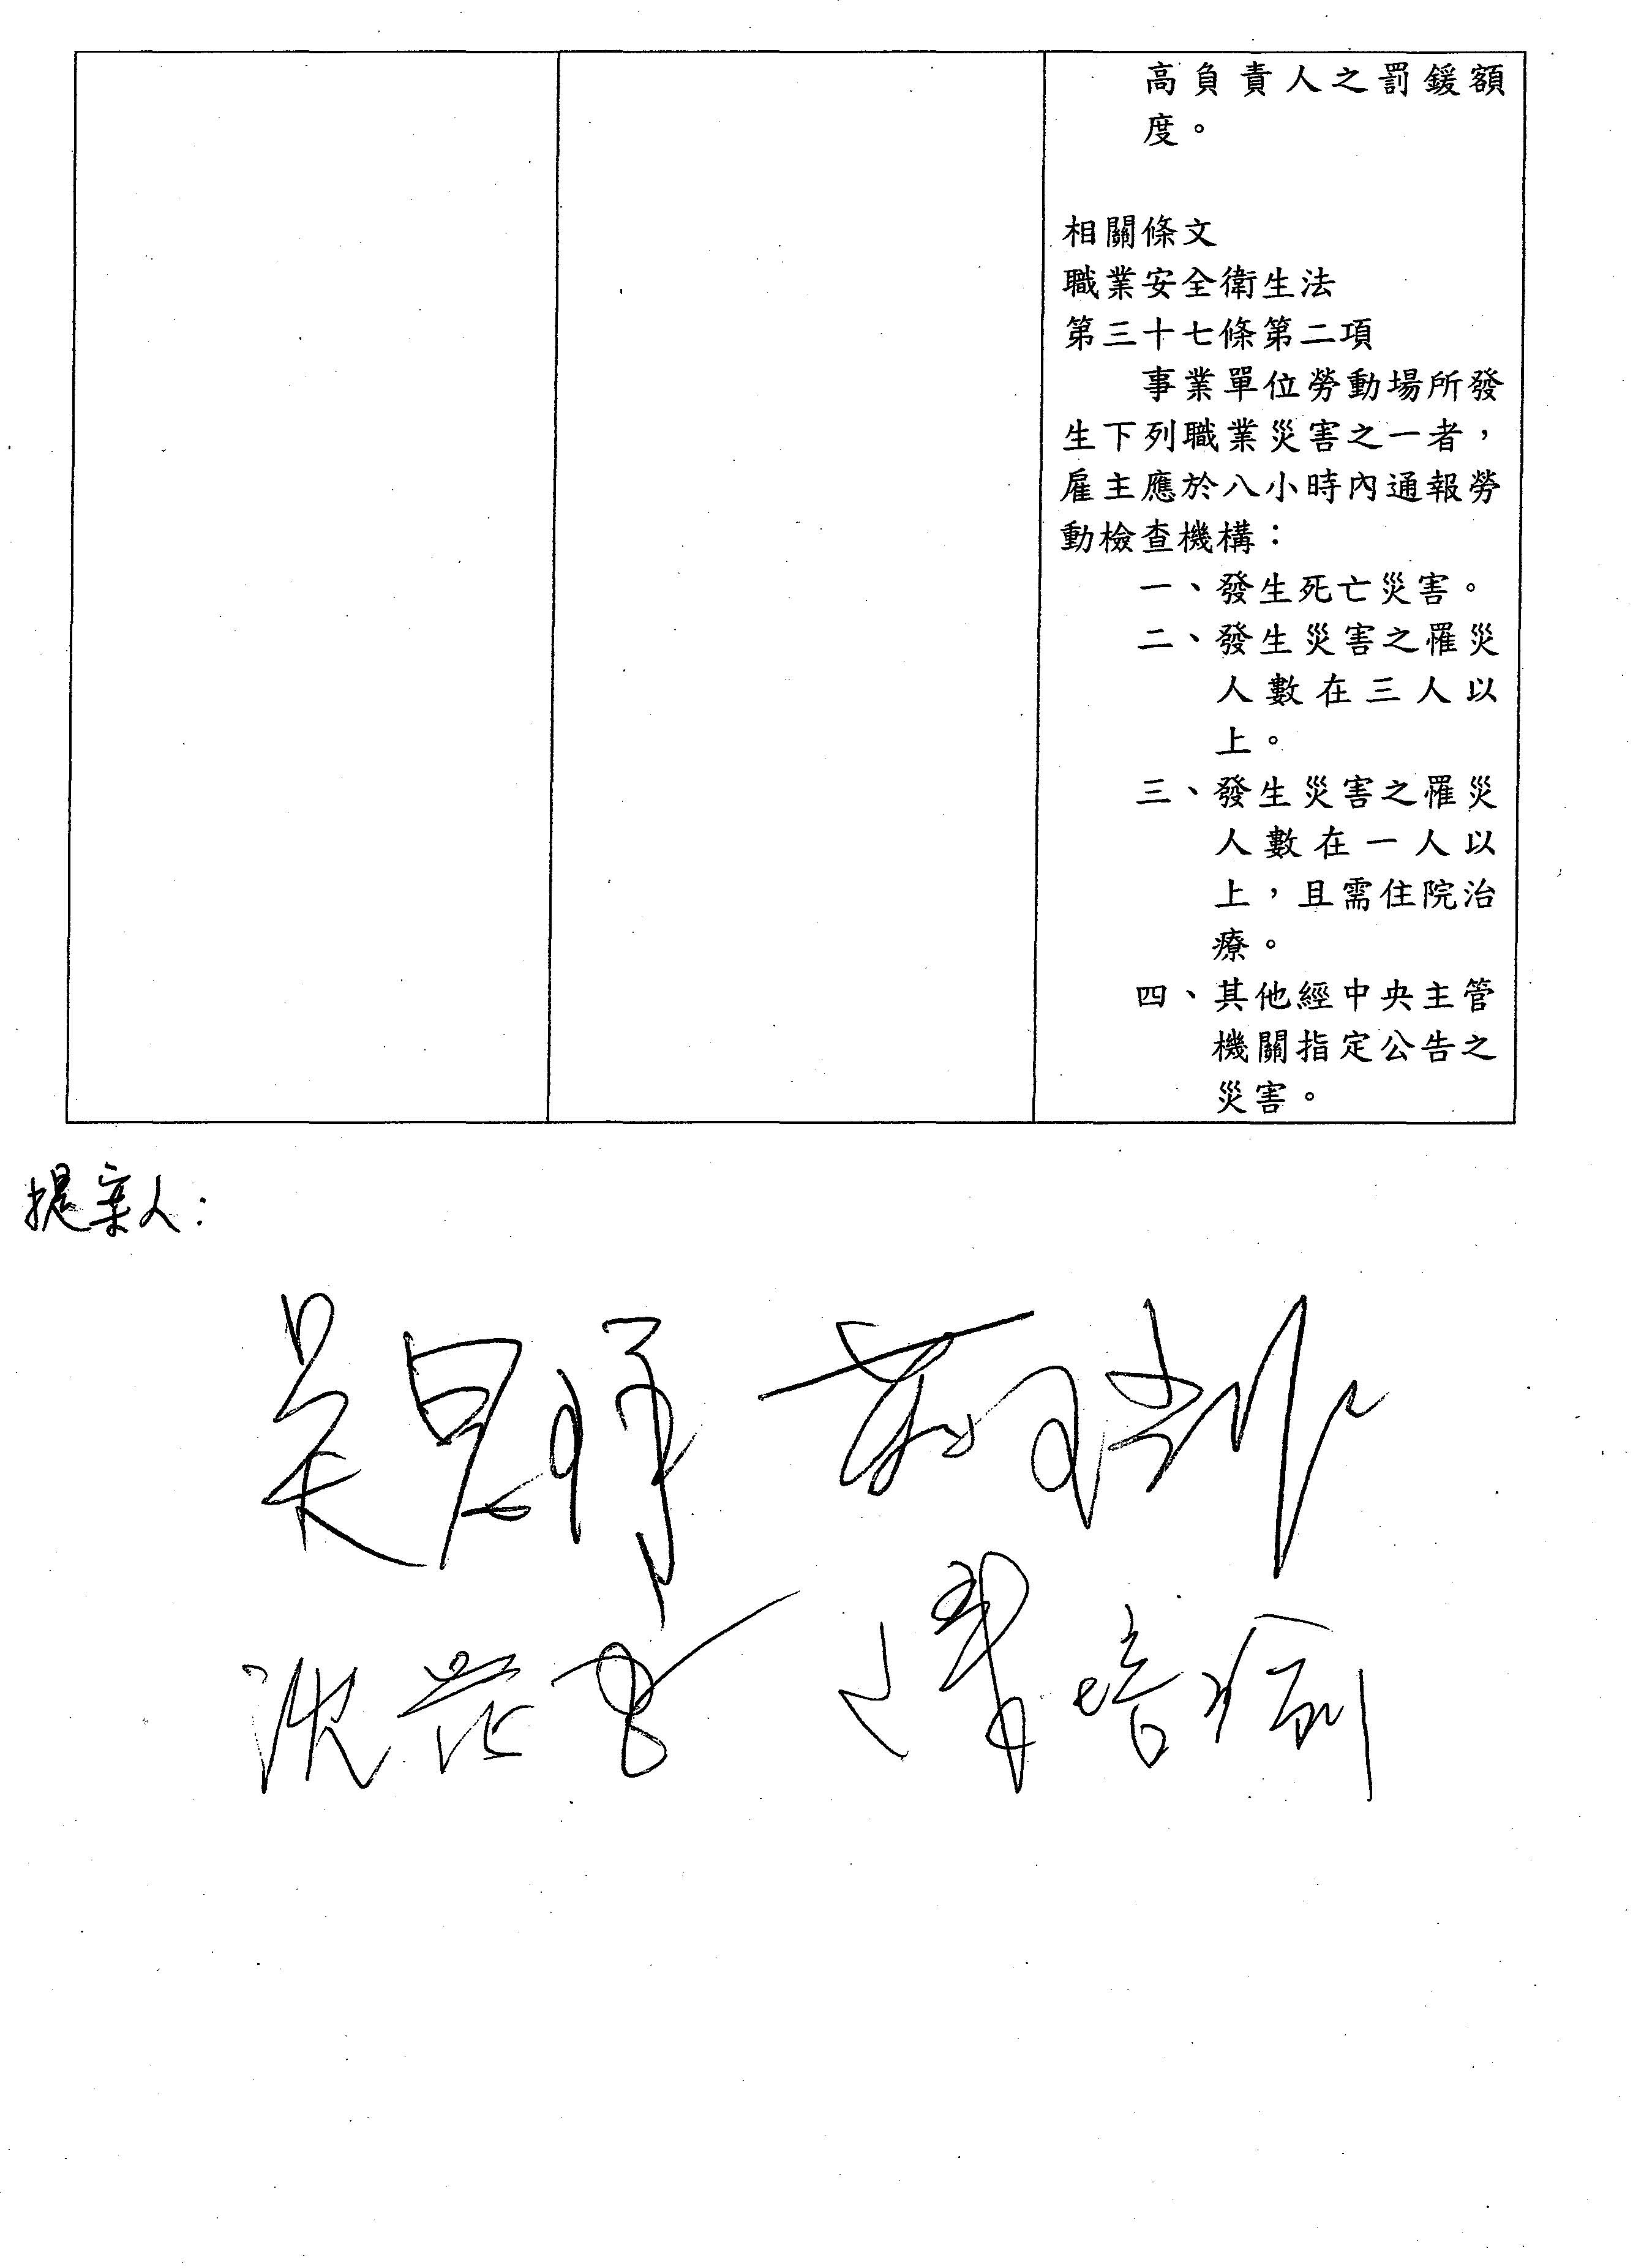 高負責人之罰鍰額
度。
相關條文
職業安全衛生法
第三十七條第二項
事業單位勞動場所發
生下列職業災害之一者，
雇主應於八小時內通報勞
動檢查機構：
一、發生死亡災害。
二、發生災害之罹災
人數在三人以
上。
三、發生災害之罹災
人數在一人以
上，且需住院治
療。
四、其他經中央主管
機關指定公告之
災害。
提案人：
吳思瑤
沈 陳培瑜